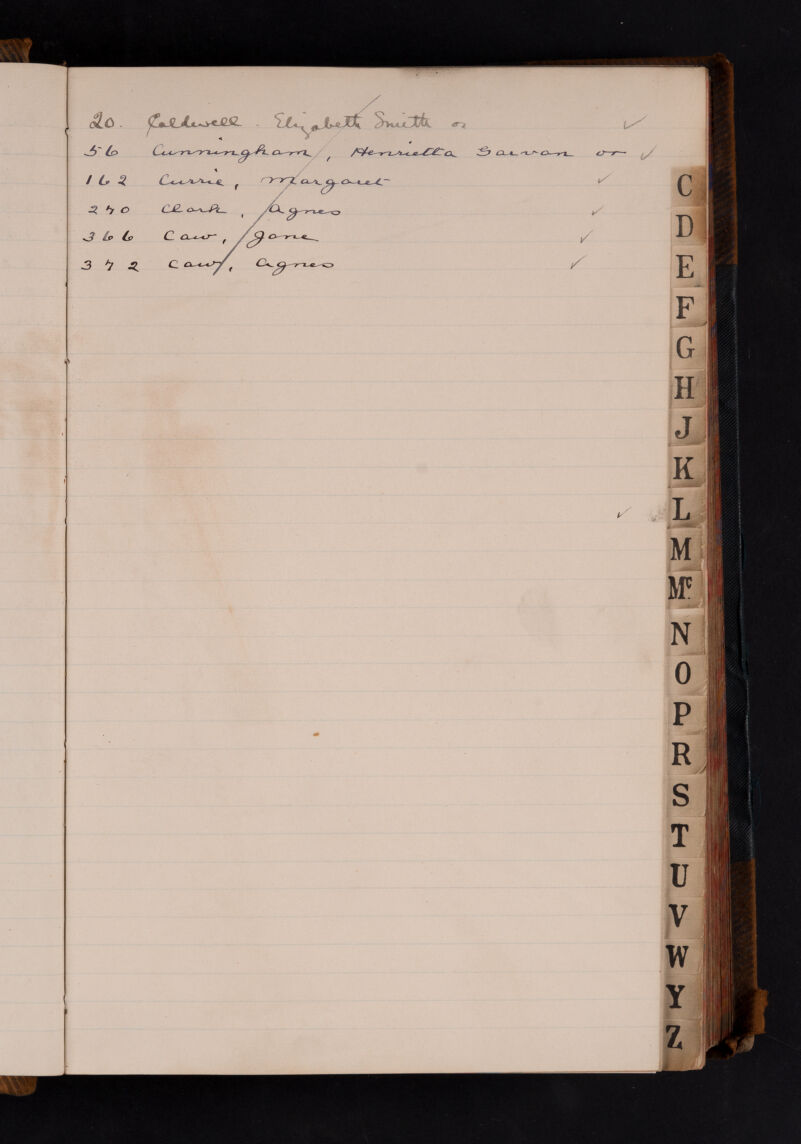 20. Caldwell. Elizabeth Smith or ✓
56 Cunningham, Henrietta Garvan or ✓
162 Currie, Margaret ✓
270 Clark, Agnes ✓
366 Caw, Jane ✓
372 Caw, Agnes ✓
✓
C
D
E
F
G
H
J
K
L
M
Mc
N
O
P
R
S
T
U
V
W
Y
Z